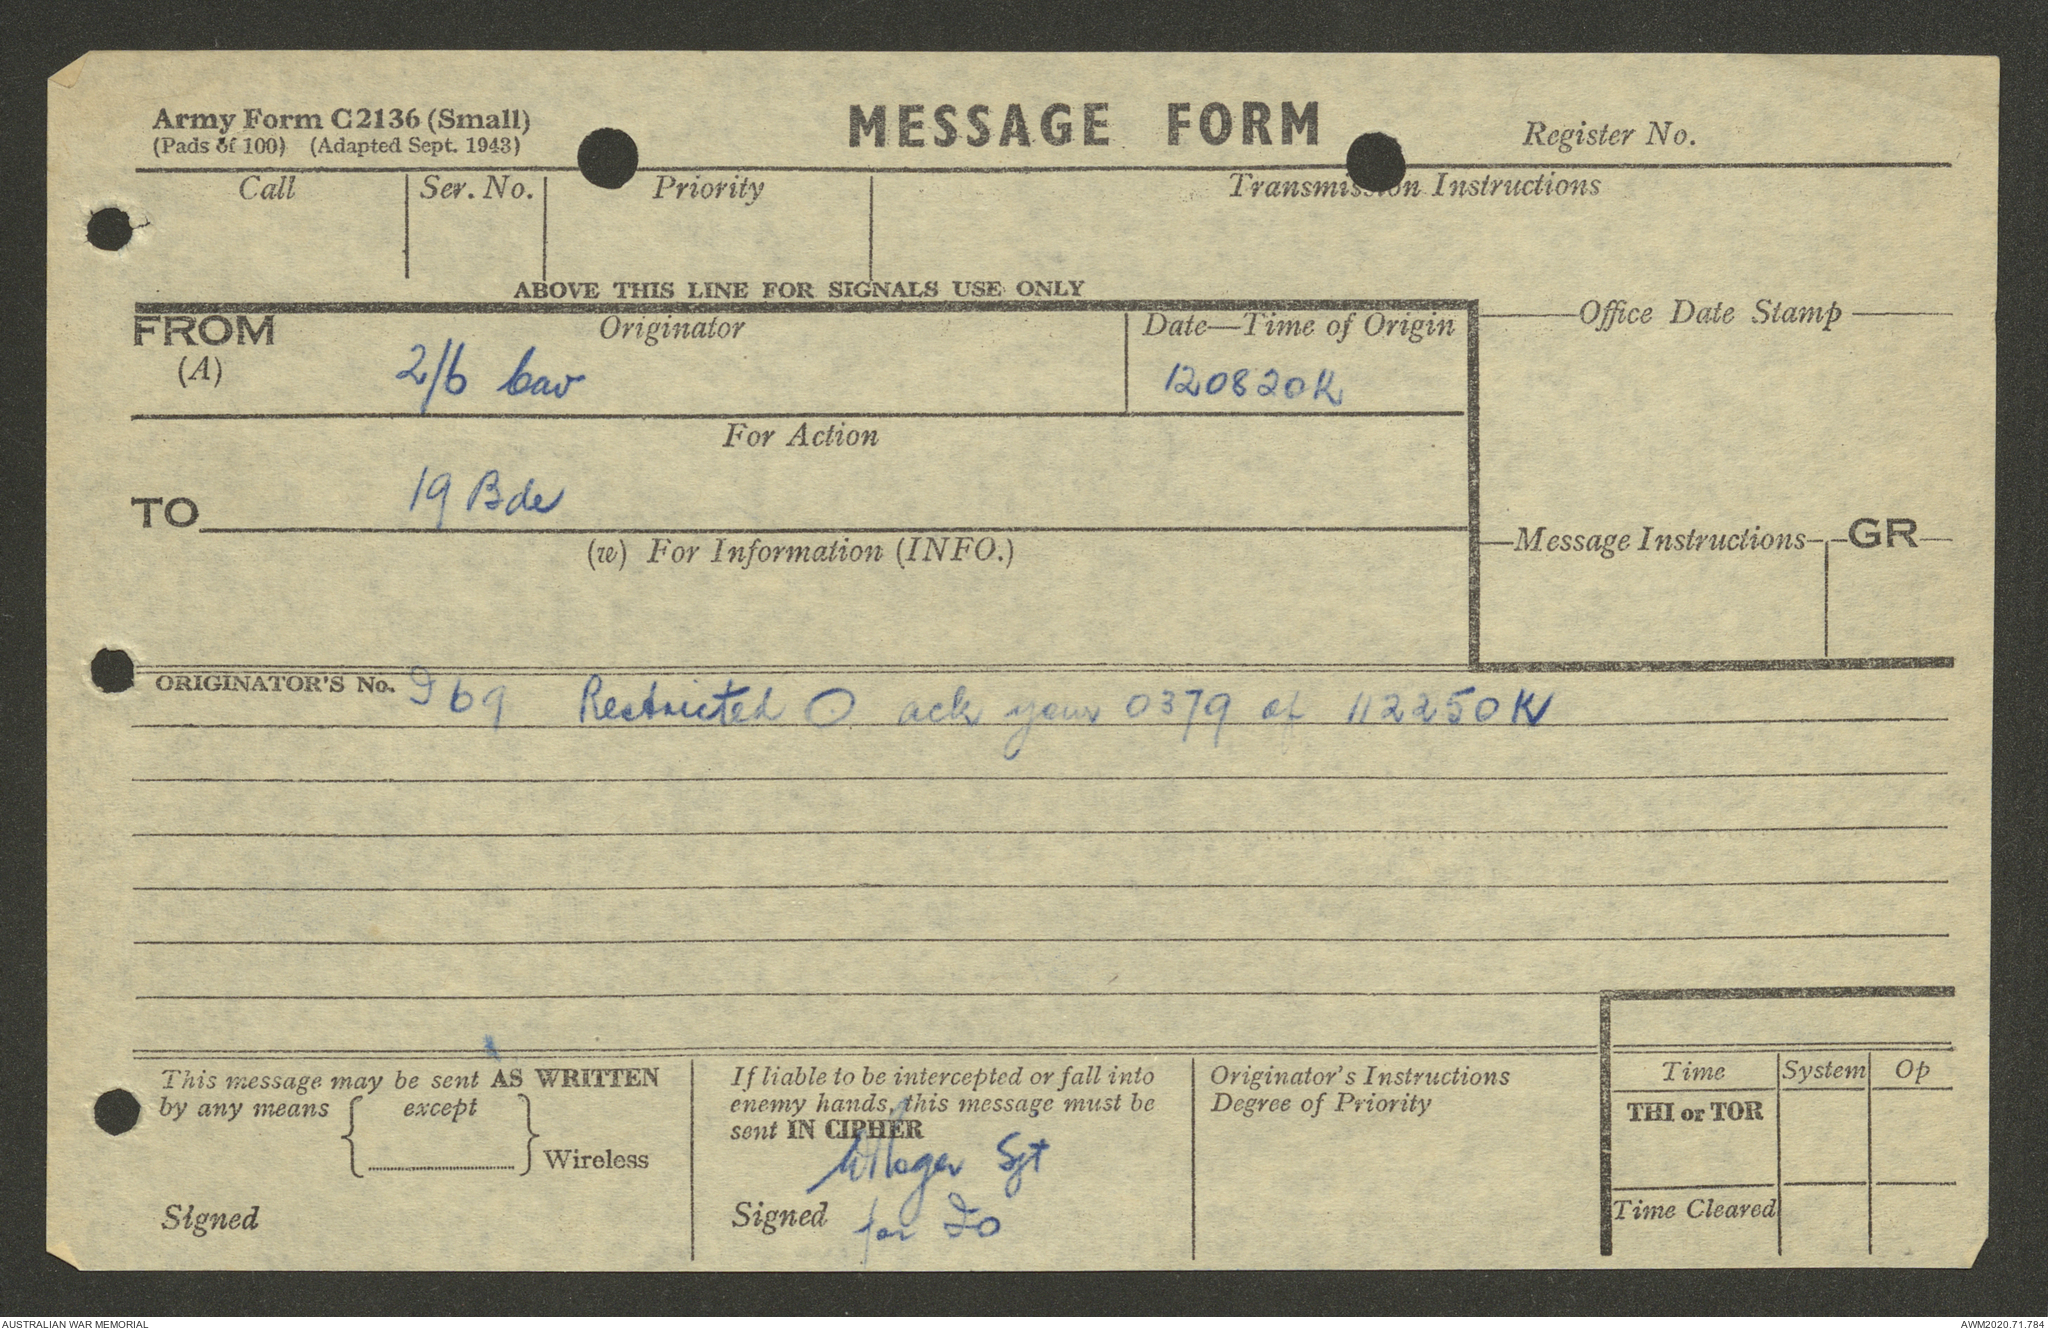 Army Form C2136 (Small)
(Pads of 100) (Adapted Sept. 1943)
MESSAGE FORM
Register No.
Call
Ser. No.
Priority
Transmission Instructions
ABOVE THIS LINE FOR SIGNALS USE ONLY
FROM
(A)
Originator
2/6 Cav
Date—Time of Origin
120820K
Office Date Stamp
For Action
TO
19 Bde
(w) For Information (INFO.)
Message Instructions
GR
ORIGINATOR'S No. I69 Restricted O ack your 0379 of 112250K
This message may be sent AS WRITTEN
by any means { except
} Wireless
Signed
If liable to be intercepted or fall into
enemy hands, this message must be
sent IN CIPHER
Sgt
Signed for IO
Originator's Instructions
Degree of Priority
Time System Op
THI or TOR
Time Cleared
AUSTRALIAN WAR MEMORIAL
AWM2020.71.784